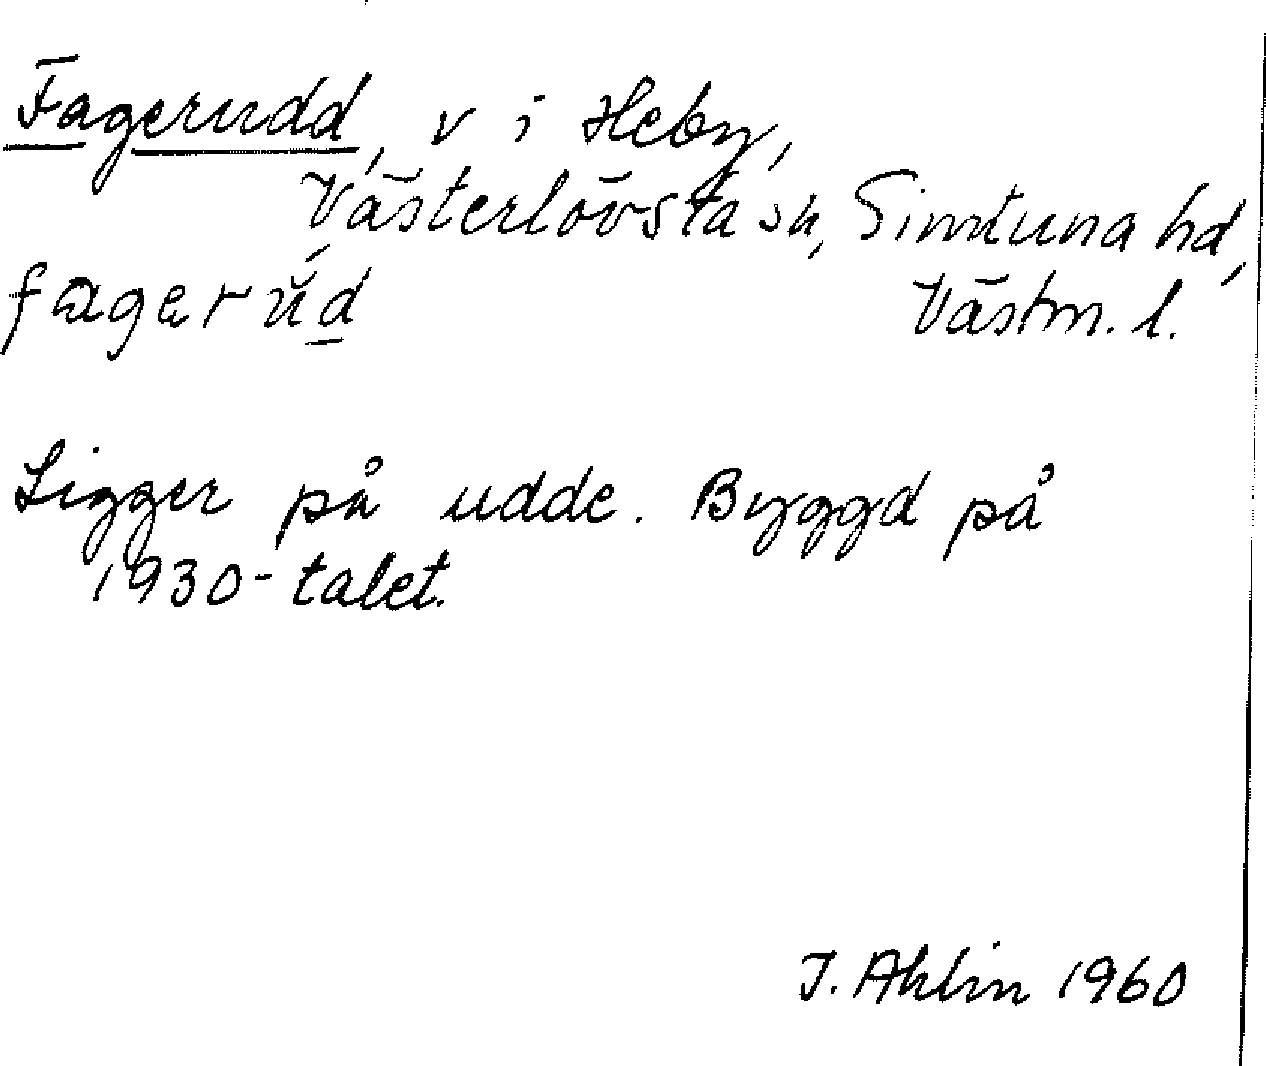 Fagerudd, v i Heby,
Västerlövsta sn, Simtuna hd,
fagerúd Västm. l.
Ligger på udde. Byggd på
1930-talet.
I. Ahlin 1960